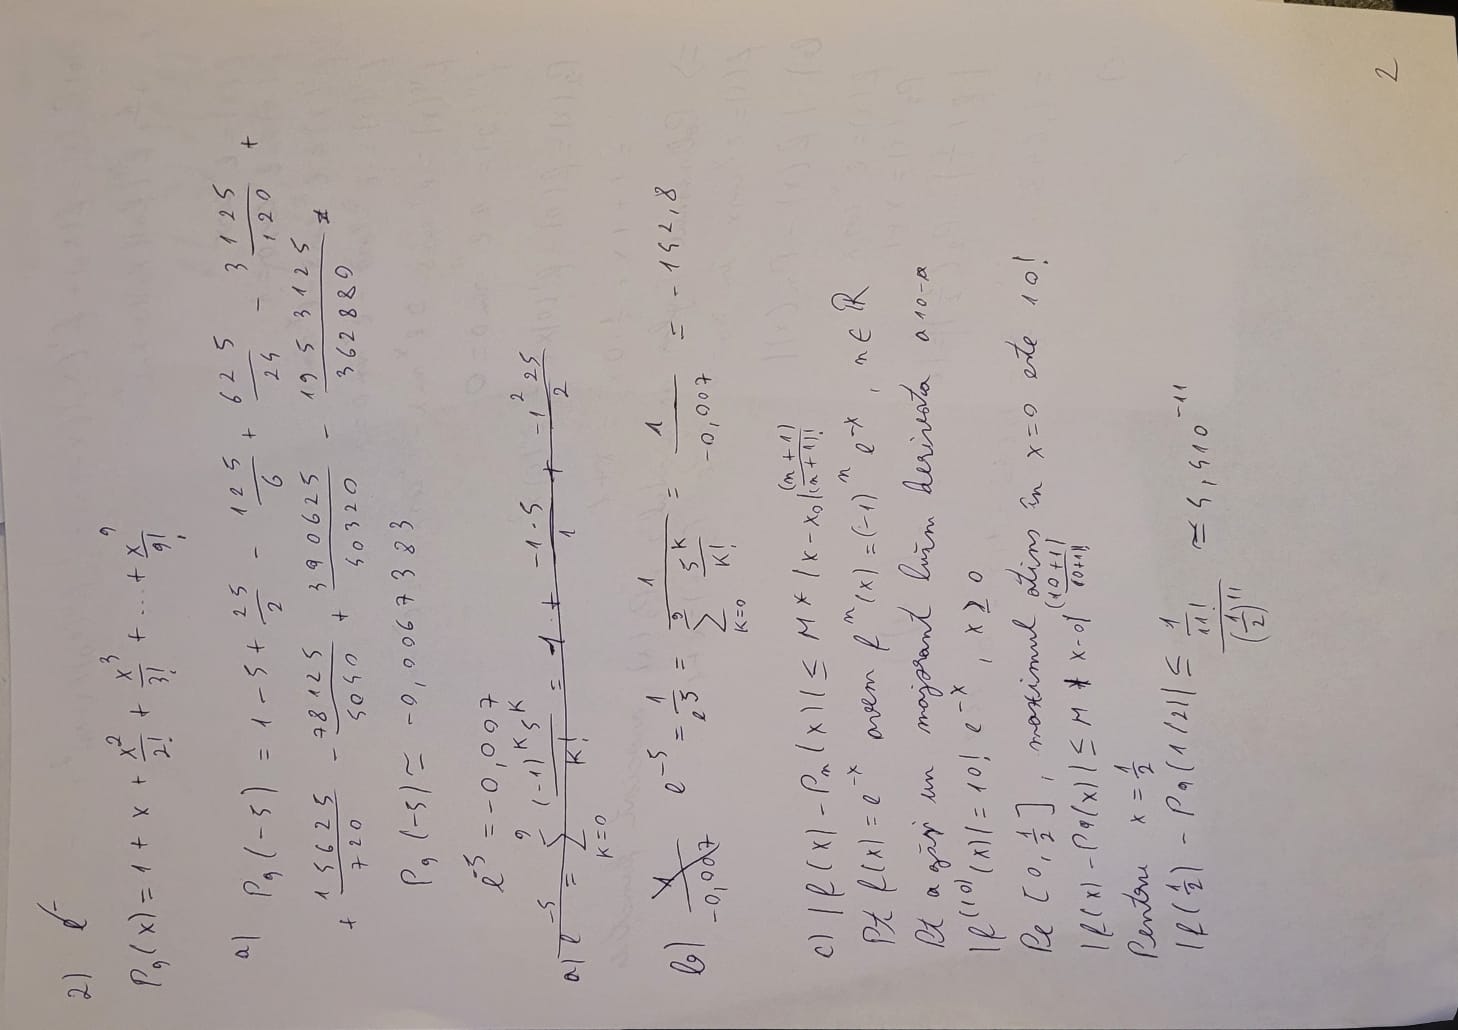 2)
P₉(x) = 1 + x + x²/2! + x³/3! + ... + x⁹/9!
a) P₉(-5) = 1 - 5 + 25/2 - 125/6 + 625/24 - 3125/120 +
+ 15625/720 - 78125/5040 + 390625/40320 - 1953125/362880
P₉(-5) ≃ -0,0067383
e⁻⁵ = -0,007
a) e⁻⁵ = ∑_{k=0}^{9} (-1)ᵏ5ᵏ/k! = 1 + -1·5/1 + -1² 25/2
b) 1/-0,007 e⁻⁵ = 1/e⁵ = 1/∑_{k=0}^{9} 5ᵏ/k! = 1/-0,007 = -142,8
c) |f(x) - Pₙ(x)| ≤ M * |x - x₀|^(n+1)/(n+1)!
Pt f(x) = e⁻ˣ avem fⁿ(x) = (-1)ⁿ e⁻ˣ, n ∈ ℝ
Pt a găsi un majorant luăm derivata a 10-a
|f⁽¹⁰⁾(x)| = 10! e⁻ˣ, x ≥ 0
Pe [0, 1/2], maximul atins în x=0 este 10!
|f(x) - P₉(x)| ≤ M * x-0|^(10+1)/(10+1)!
Pentru x = 1/2
|f(1/2) - P₉(1/2)| ≤ 1/11!/(1/2)¹¹ ≃ 4,410⁻¹¹
2